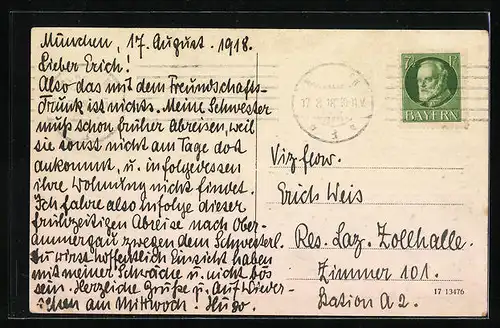 München, 17. August. 1918.
Lieber Erich!
Also das mit dem Freundschafts-
Trunk ist nichts. Meine Schwester
muß schon früher Abreisen, weil
sie sonst nicht am Tage dort
ankommt, u. infolgedessen
ihre Wohnung nicht findet.
Ich fahre also infolge dieser
frühzeitigen Abreise nach Ober-
ammergau zwegen dem Schwesterl.
Du wirst hoffentlich Einsicht haben
mit meiner Schwäche u. nicht bös
sein. Herzliche Grüße u. Auf Wieder-
sehen am Mittwoch! Hugo.
7 Pf
BAYERN
17. 8. 18
Vizflow.
Erich Weis
Res. Laz. Zollhalle.
Zimmer 101.
Station A 2.
17 13476